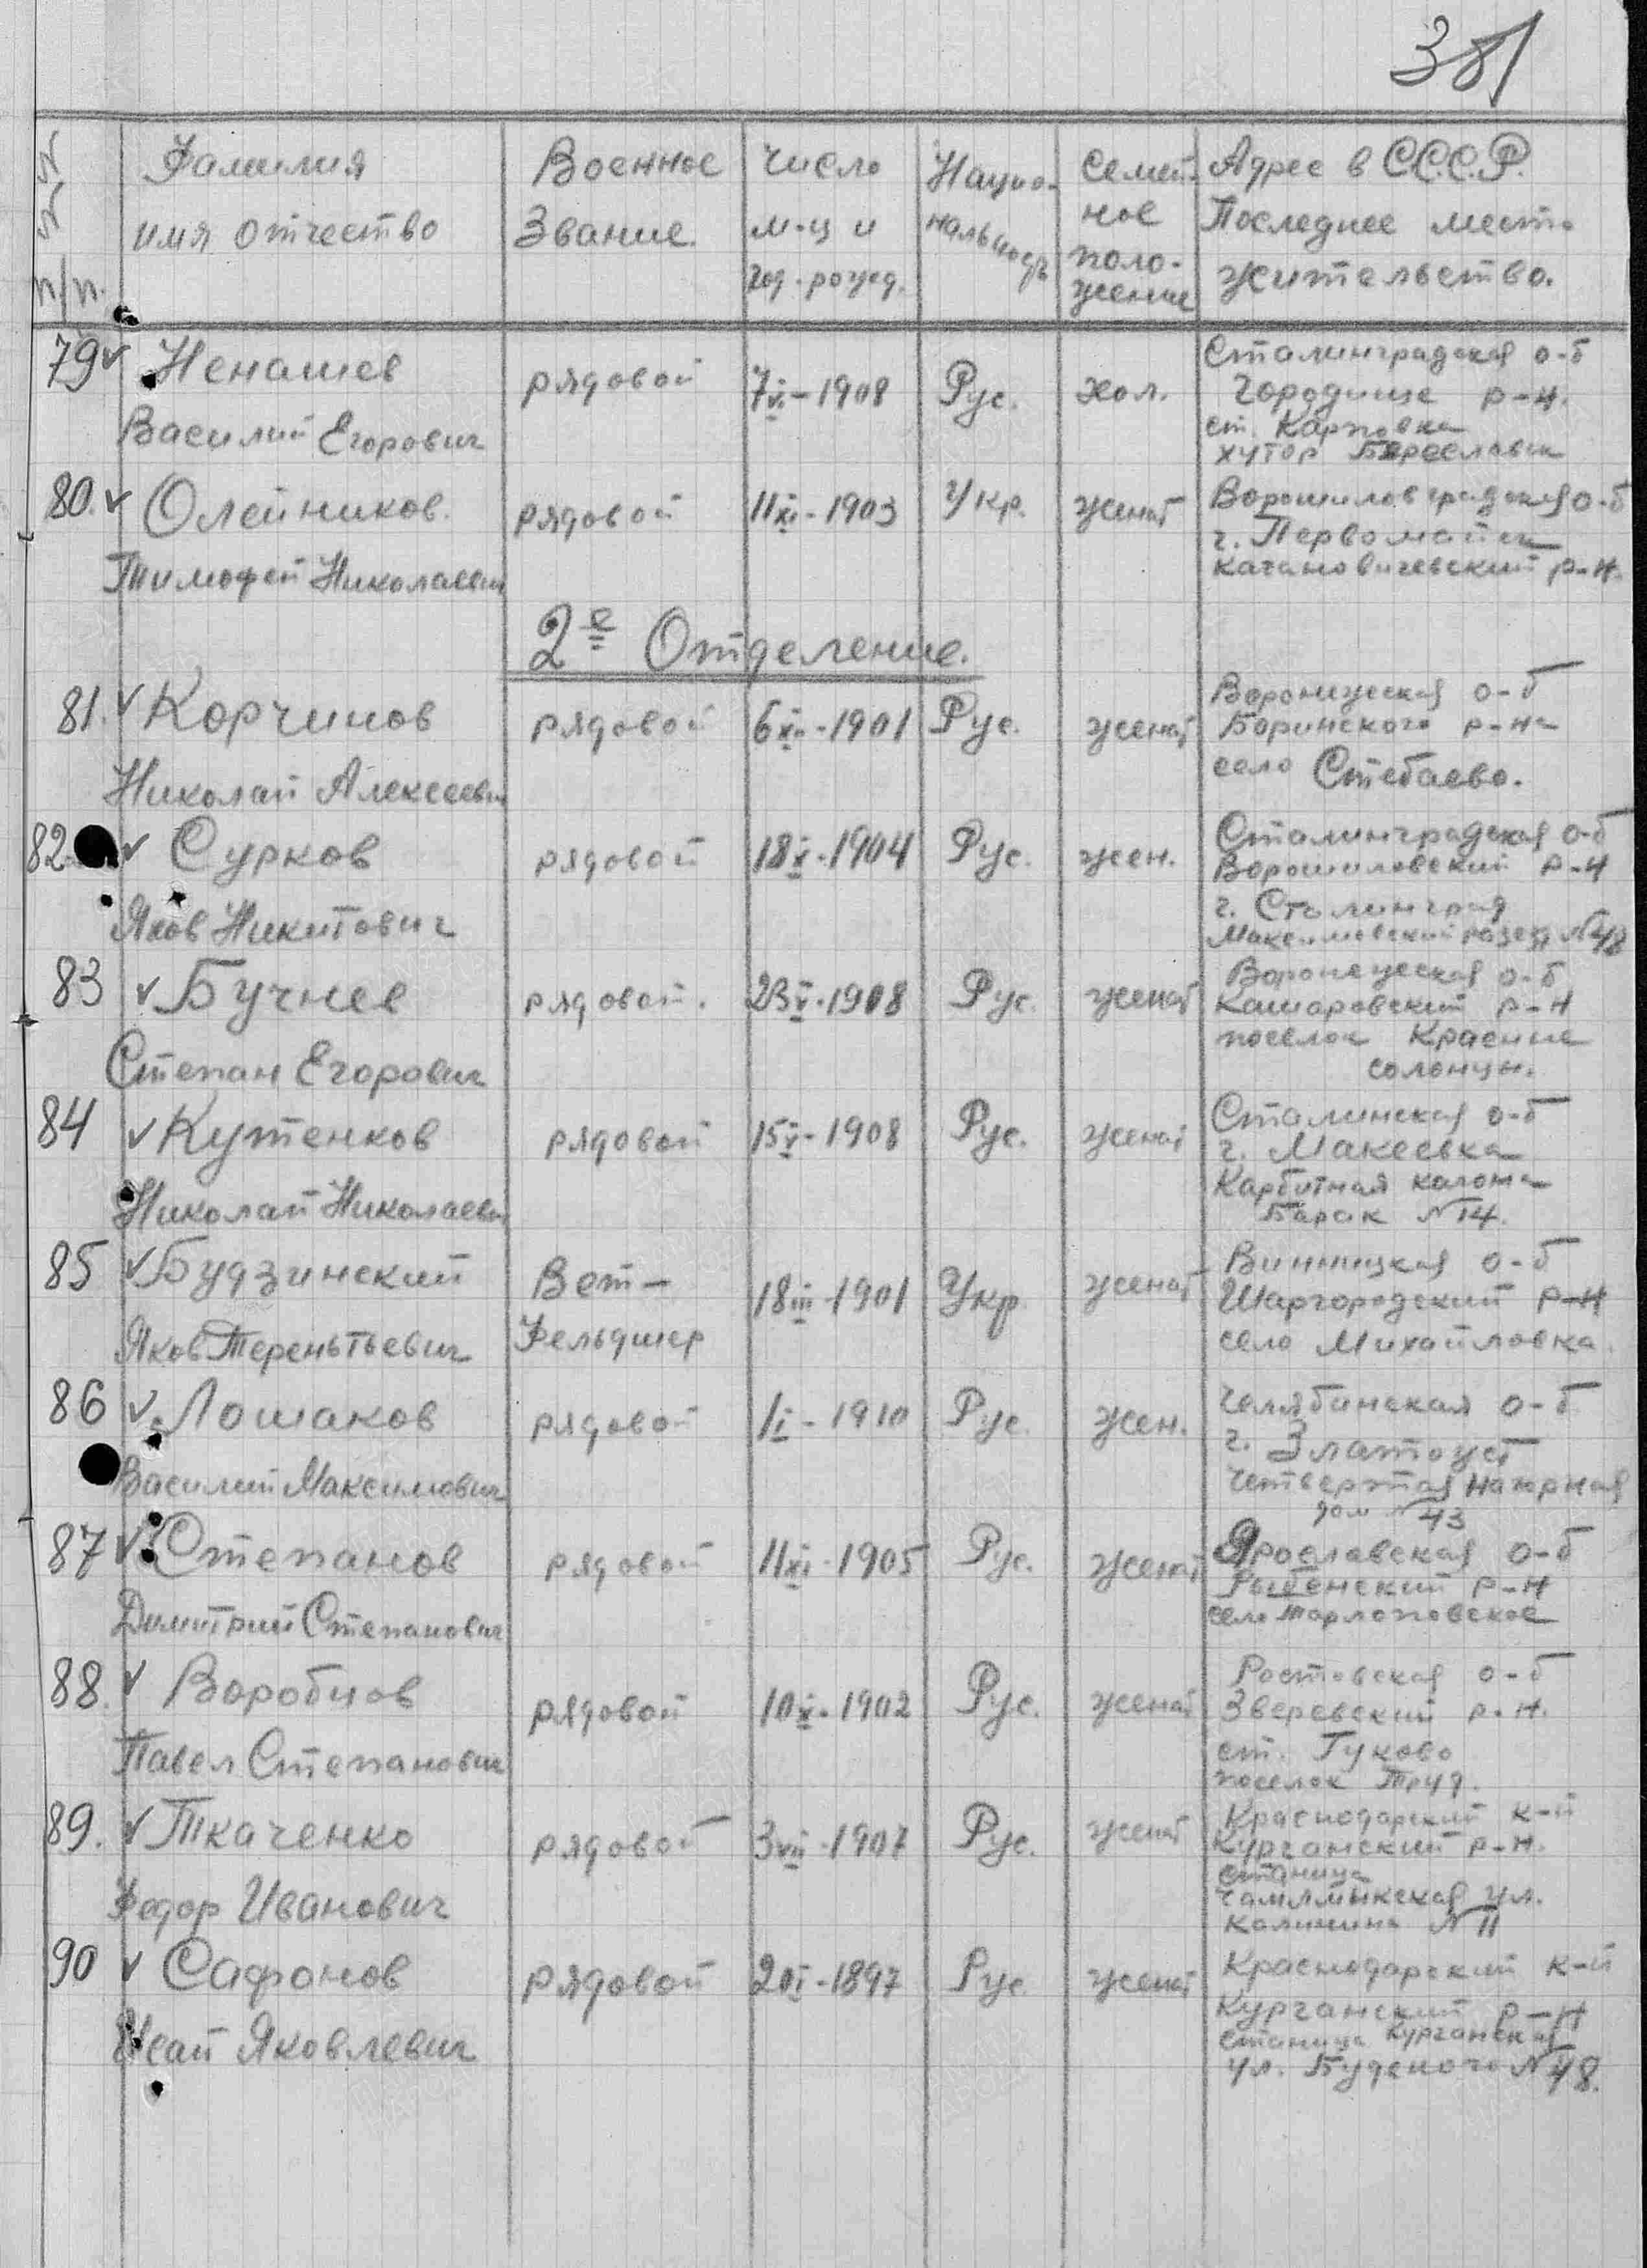 381
№ № п/п.
Фамилия имя отчество
Военное Звание.
Число м-ц и год-рожд.
Нацио-нальность
Семей-ное поло-жение
Адрес в С.С.С.Р. Последнее место жительство.
79 ✓ Ненашев рядовой 7 VI - 1908 Рус. хол. Сталинградская о-б
Василий Егорович Городище р-н.
ст. Карповка
хутор Береславск
80. ✓ Олейников. рядовой 11 XI - 1903 Укр. женат Ворошиловградская о-б
г. Первомайск
Тимофей Николаевич Кагановичевский р-н.
2е Отделение.
81. ✓ Корчинов рядовой 6 XII - 1901 Рус. женат Воронежская о-б
Боринского р-на
Николай Алексеевич село Стебаево.
82 ✓ Сурков рядовой 18 X - 1904 Рус. жен. Сталинградская о-б
Ворошиловский р-н
г. Сталинград
Яков Никитович Максимовский разезд №48
83 ✓ Бучнев рядовой. 23 V - 1908 Рус. женат Воронежская о-б
Кашаровский р-н
поселок Красные
Степан Егорович солонцы.
84 ✓ Кутенков рядовой 15 V - 1908 Рус. женат Сталинская о-б
г. Макеевка
Карбитная калона
Николай Николаевич Барак №14.
85 ✓ Будзинский Вет- 18 III - 1901 Укр женат Винницкая о-б
Шаргородский р-н
Яков Терентьевич Фельдшер село Михайловка.
86 ✓ Лошаков рядовой 1 I - 1910 Рус. жен. Челябинская о-б
г. Златоуст
Василий Максимович Четвертая Нагорная
дом №43
87 ✓ Степанов рядовой 11 XI - 1905 Рус. женат Ярославская о-б
Рыбенский р-н
Димитрий Степанович село
88. ✓ Воробиов рядовой 10 X - 1902 Рус. женат Ростовская о-б
Зверевский р-н.
ст. Гуково
Павел Степанович поселок
89. ✓ Ткаченко рядовой 3 VII - 1907 Рус. женат Краснодарский к-й
Курганский р-н.
станица
Федор Иванович Чамлыкская ул.
Калинина №11
90 ✓ Сафонов рядовой 20 I - 1897 Рус. женат Краснодарский к-й
Курганский р-н
станица Курганская
Исай Яковлевич ул. Буденого №48.